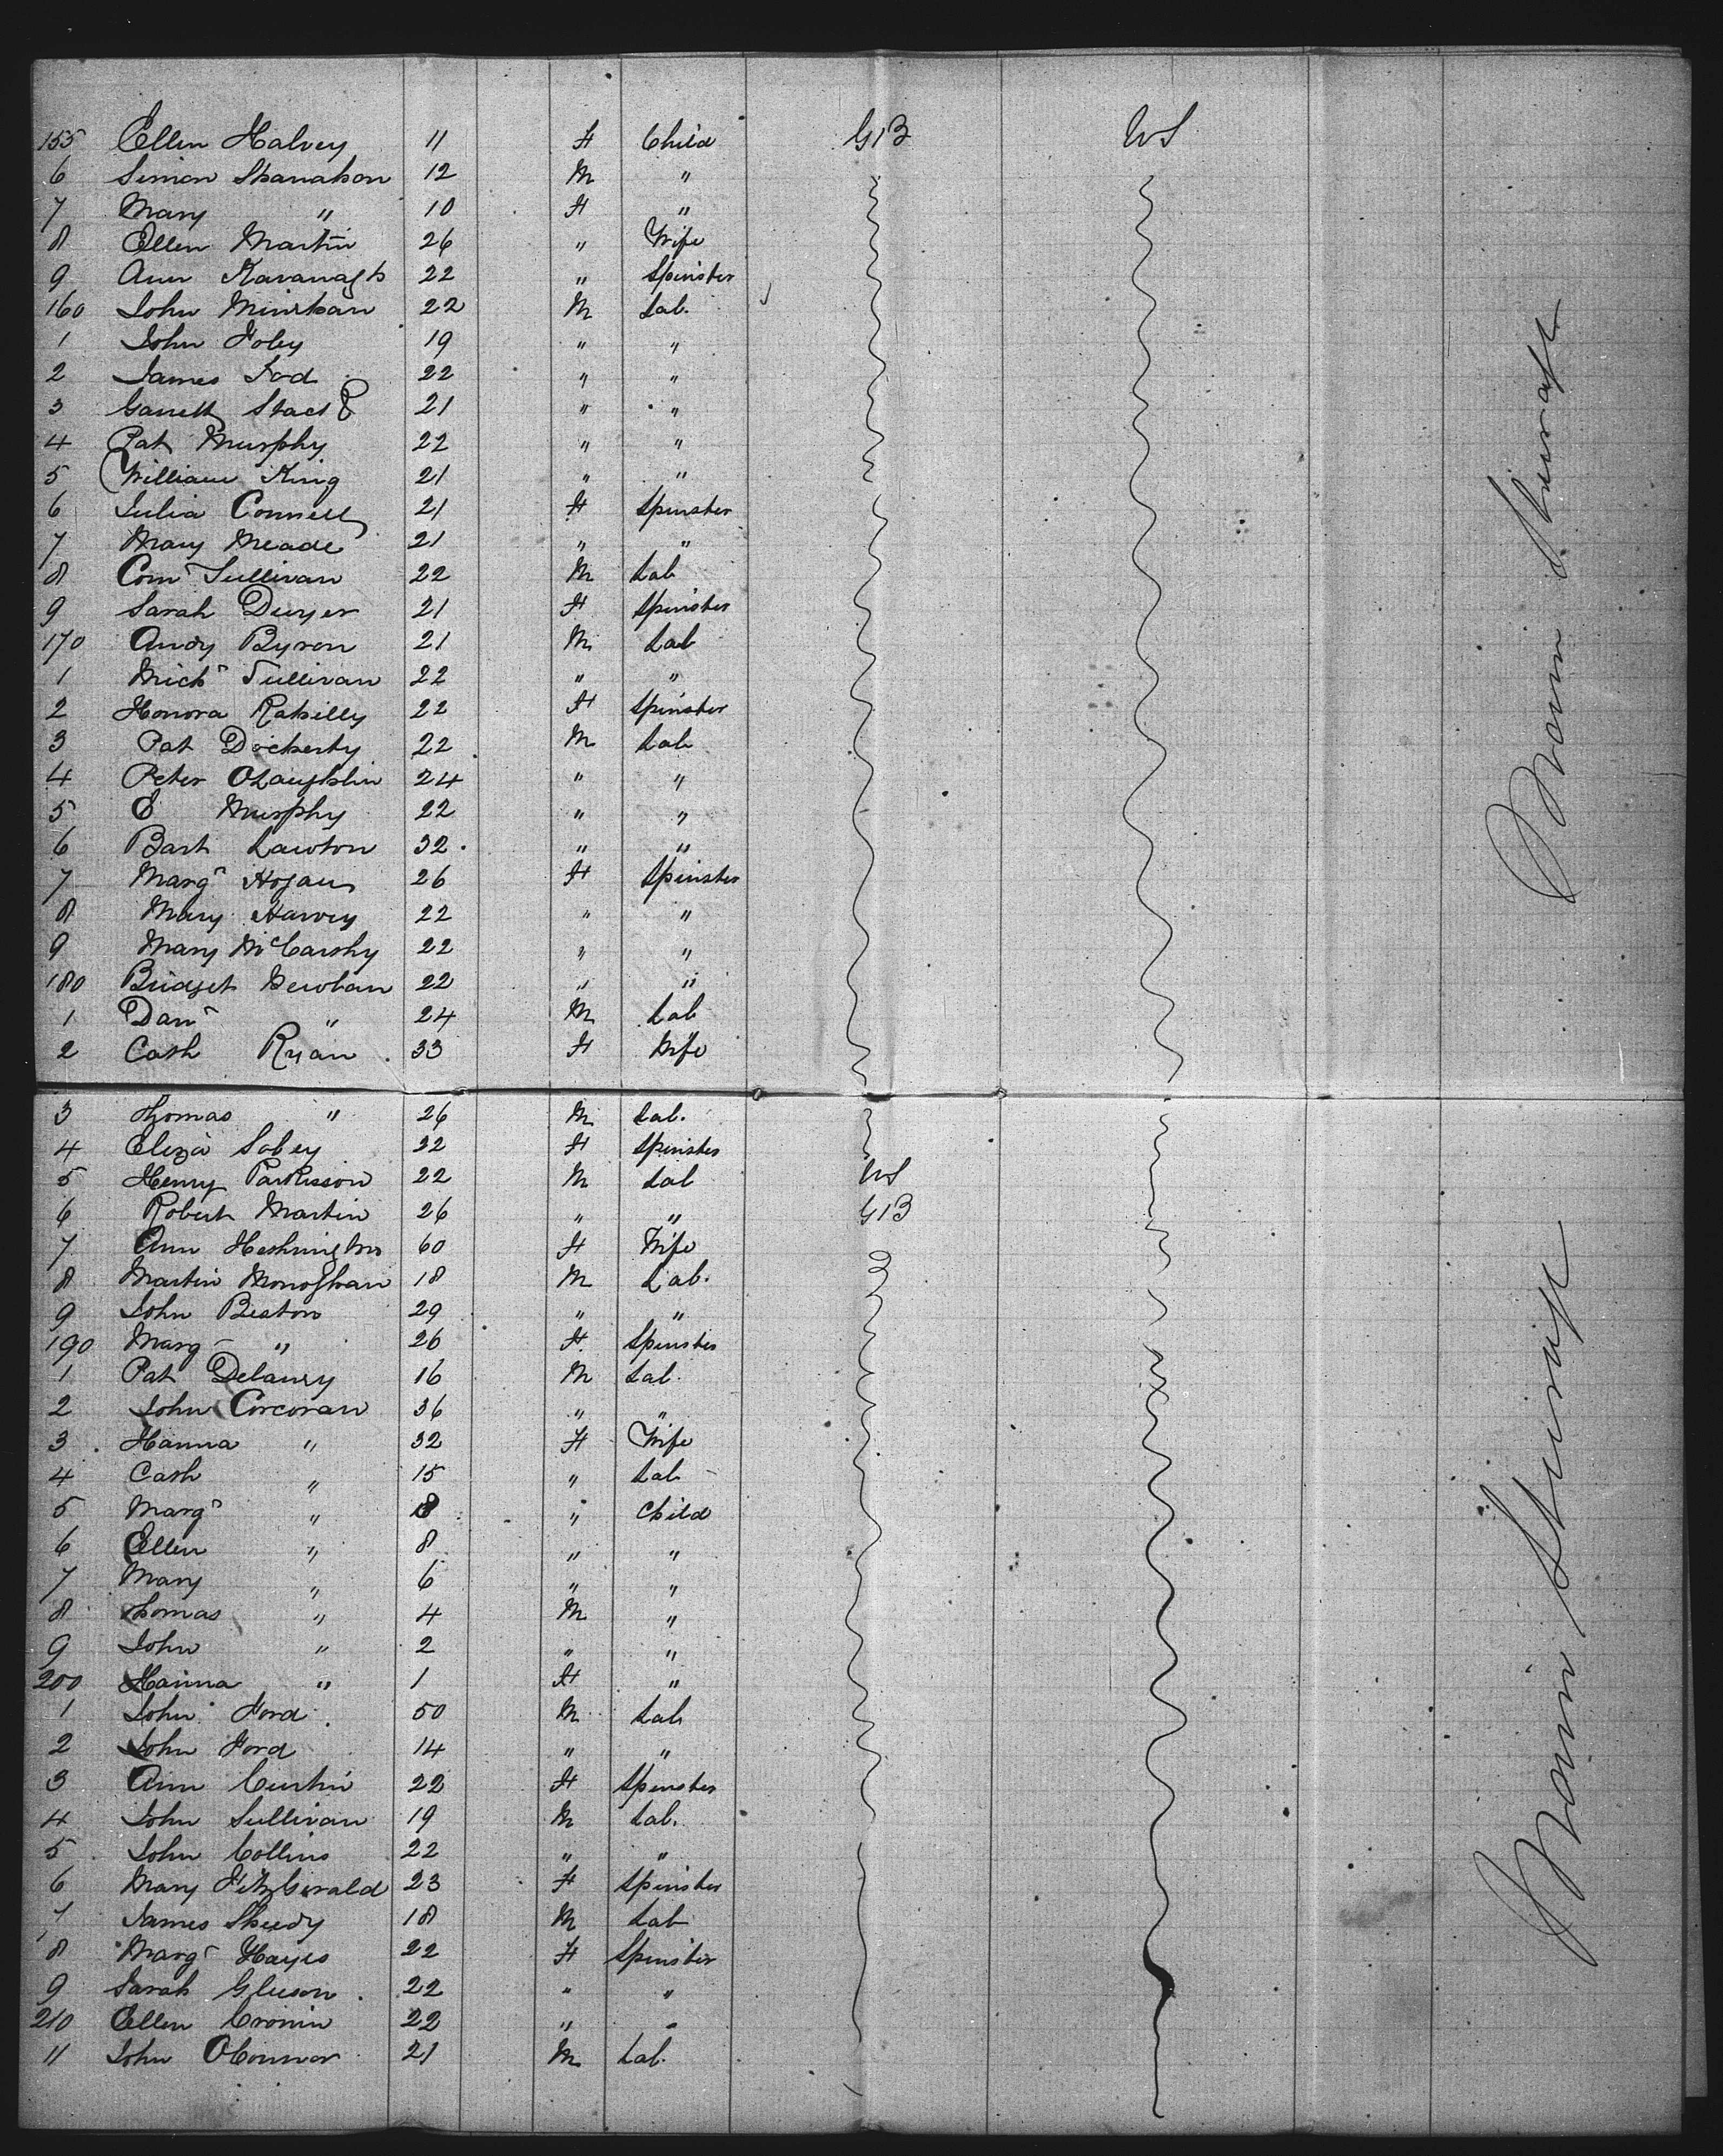 155 Ellen Halvey 11 F Child G13 US
6 Simon Shanahan 12 M "
7 Mary " 10 F "
8 Ellen Martin 26 " Wife
9 Ann Kavanagh 22 " Spinster
160 John Minihan 22 M Lab.
1 John Foley 19 " "
2 James 22 " "
3 Garrett 21 " "
4 Pat Murphy 22 " "
5 William King 21 " "
6 Julia Connell 21 F Spinster
7 Mary Meade 21 " "
8 Corn Sullivan 22 M Lab
9 Sarah Dwyer 21 F Spinster
170 Andy Byron 21 M Lab
1 Mich Sullivan 22 " "
2 Honora Rahilly 22 F Spinster
3 Pat Dockerty 22 M Lab
4 Peter OLaughlin 24 " "
5 E Murphy 22 " "
6 Bart Lawton 32 " "
7 Marg Hogan 26 F Spinster
8 Mary Harvey 22 " "
9 Mary McCarthy 22 " "
180 Bridget 22 " "
1 Dan " 24 M Lab
2 Cath Ryan 33 F Wife
3 Thomas " 26 M Lab.
4 Eliza 32 F Spinster
5 Henry Parkisson 22 M Lab US
6 Robert Martin 26 " " G13
7 Ann 60 F Wife
8 Martin Monoghan 18 M Lab.
9 John Beaton 29 " "
190 Marg " 26 F Spinster
1 Pat Delaney 16 M Lab.
2 John Corcoran 36 " "
3 Hanna " 32 F Wife
4 Cath " 15 " Lab
5 Marg " " Child
6 Ellen " 8 " "
7 Mary " 6 " "
8 Thomas " 4 M "
9 John " 2 " "
200 Hanna " 1 F "
1 John Ford 50 M Lab
2 John Ford 14 " "
3 Ann Curtin 22 F Spinster
4 John Sullivan 19 M Lab.
5 John Collins 22 " "
6 Mary FitzGerald 23 F Spinster
7 James Sheedy 18 M Lab
8 Marg Hayes 22 F Spinster
9 Sarah Gleeson 22 " "
210 Ellen Cronin 22 " "
11 John OConnor 21 M Lab.